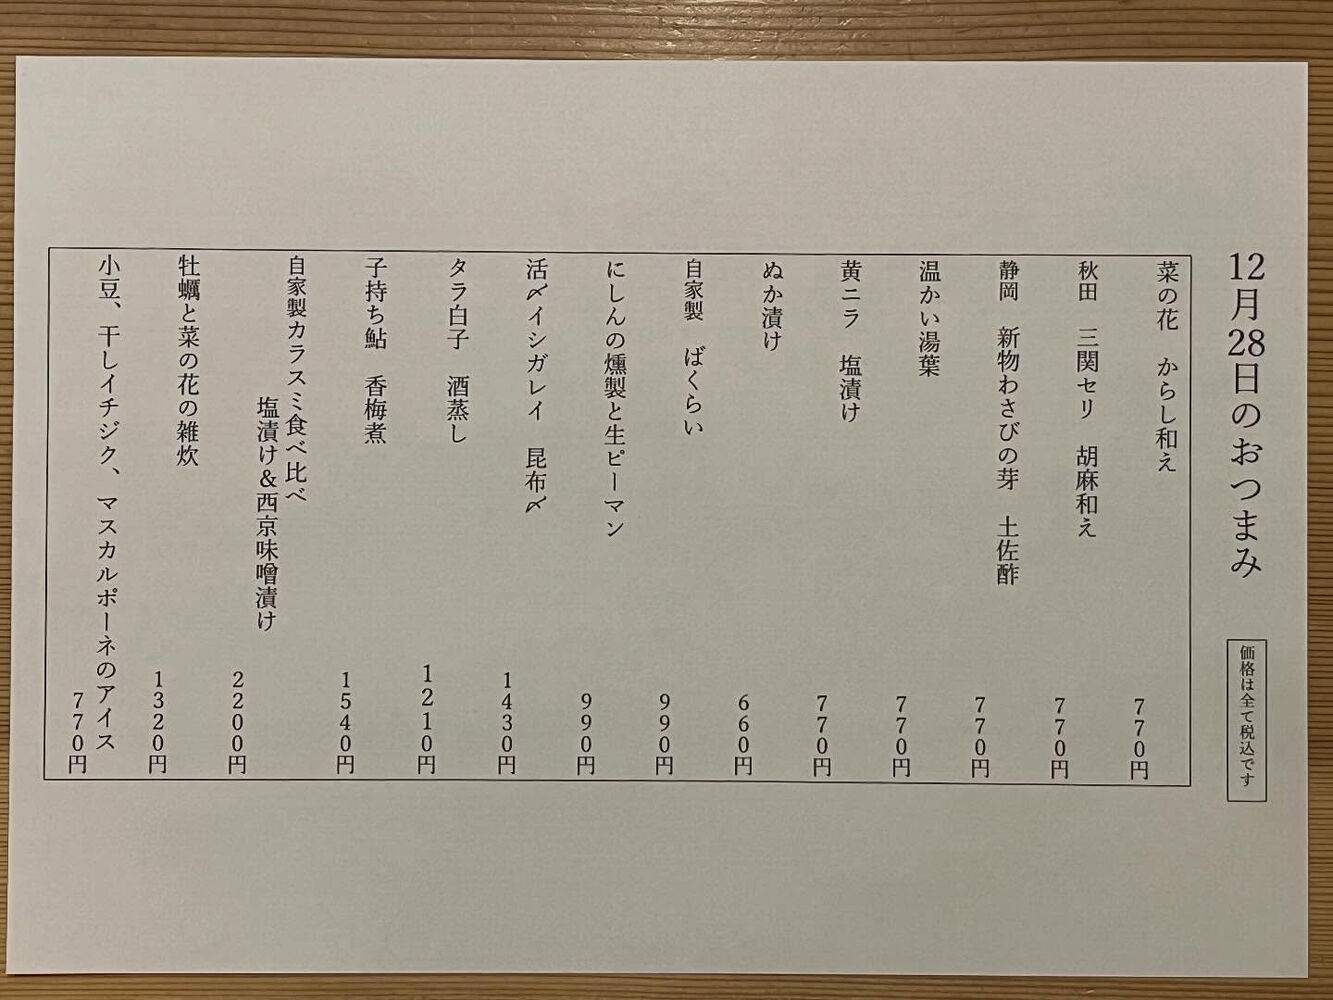 12月28日のおつまみ
価格は全て税込です
菜の花　からし和え
770円
秋田　三関セリ　胡麻和え
770円
静岡　新物わさびの芽　土佐酢
770円
温かい湯葉
770円
黄ニラ　塩漬け
770円
ぬか漬け
660円
自家製　ばくらい
990円
にしんの燻製と生ピーマン
990円
活〆イシガレイ　昆布〆
1430円
タラ白子　酒蒸し
1210円
子持ち鮎　香梅煮
1540円
自家製カラスミ食べ比べ
塩漬け＆西京味噌漬け
2200円
牡蠣と菜の花の雑炊
1320円
小豆、干しイチジク、マスカルポーネのアイス
770円